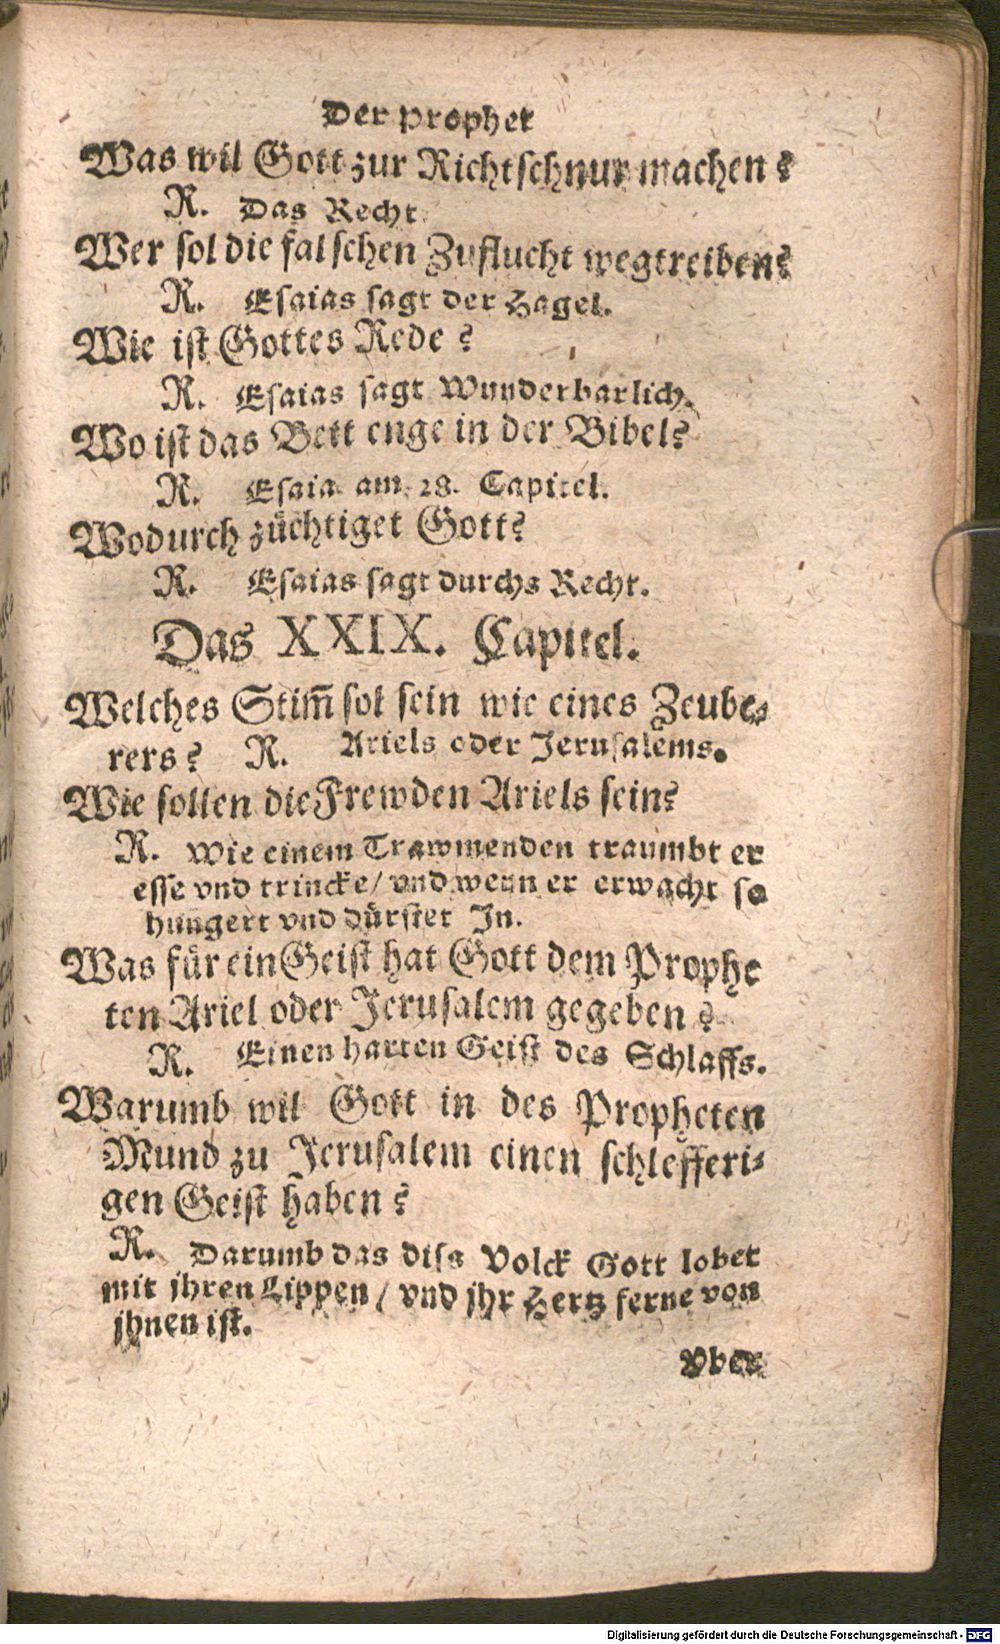 Der Prophet
Was wil Gott zur Richtschnur machen?
R. Das Recht.
Wer sol die falschen Zuflucht wegtreiben?
R. Esaias sagt der Hagel.
Wie ist Gottes Rede?
R. Esaias sagt Wunderbarlich.
Wo ist das Bett enge in der Bibel?
R. Esaia am 28. Capitel.
Wodurch züchtiget Gott?
R. Esaias sagt durchs Recht.
Das XXIX. Capitel.
Welches Stim̃ sol sein wie eines Zeube-
rers? R. Ariels oder Jerusalems.
Wie sollen die Frewden Ariels sein?
R. Wie einem Trawmenden traumbt er
esse vnd trincke / vnd wenn er erwacht so
hungert vnd dürstet Jn.
Was für ein Geist hat Gott dem Prophe
ten Ariel oder Jerusalem gegeben?
R. Einen harten Geist des Schlaffs.
Warumb wil Gott in des Propheten
Mund zu Jerusalem einen schlefferi-
gen Geist haben?
R. Darumb das diss Volck Gott lobet
mit jhren Lippen / vnd jhr Hertz ferne von
jhnen ist.
Vber
Digitalisierung gefördert durch die Deutsche Forschungsgemeinschaft - DFG